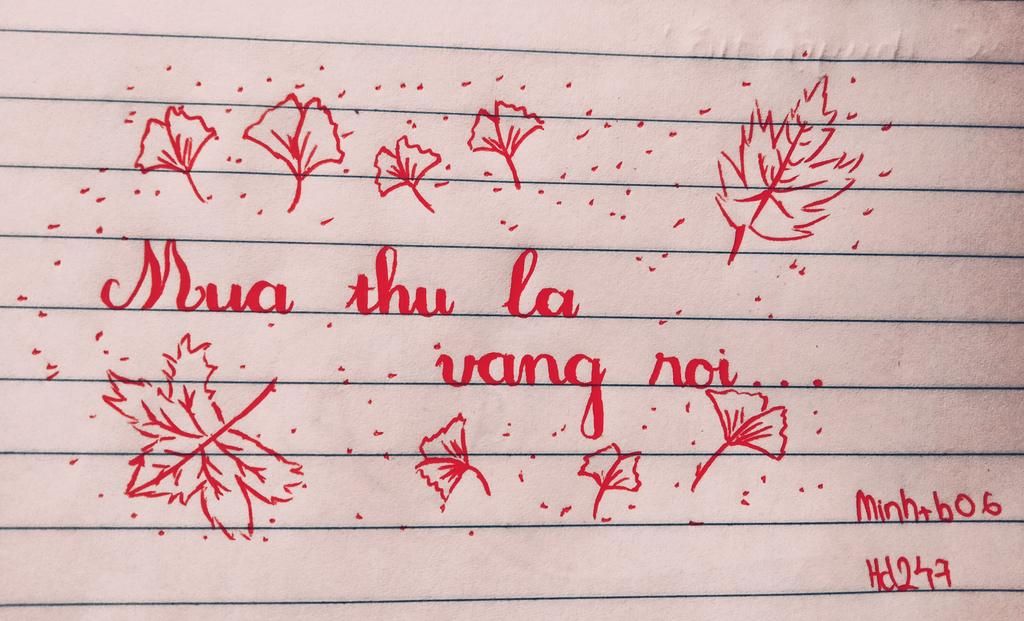 Mua thu la
vang roi...
Minh+b06
Hd247